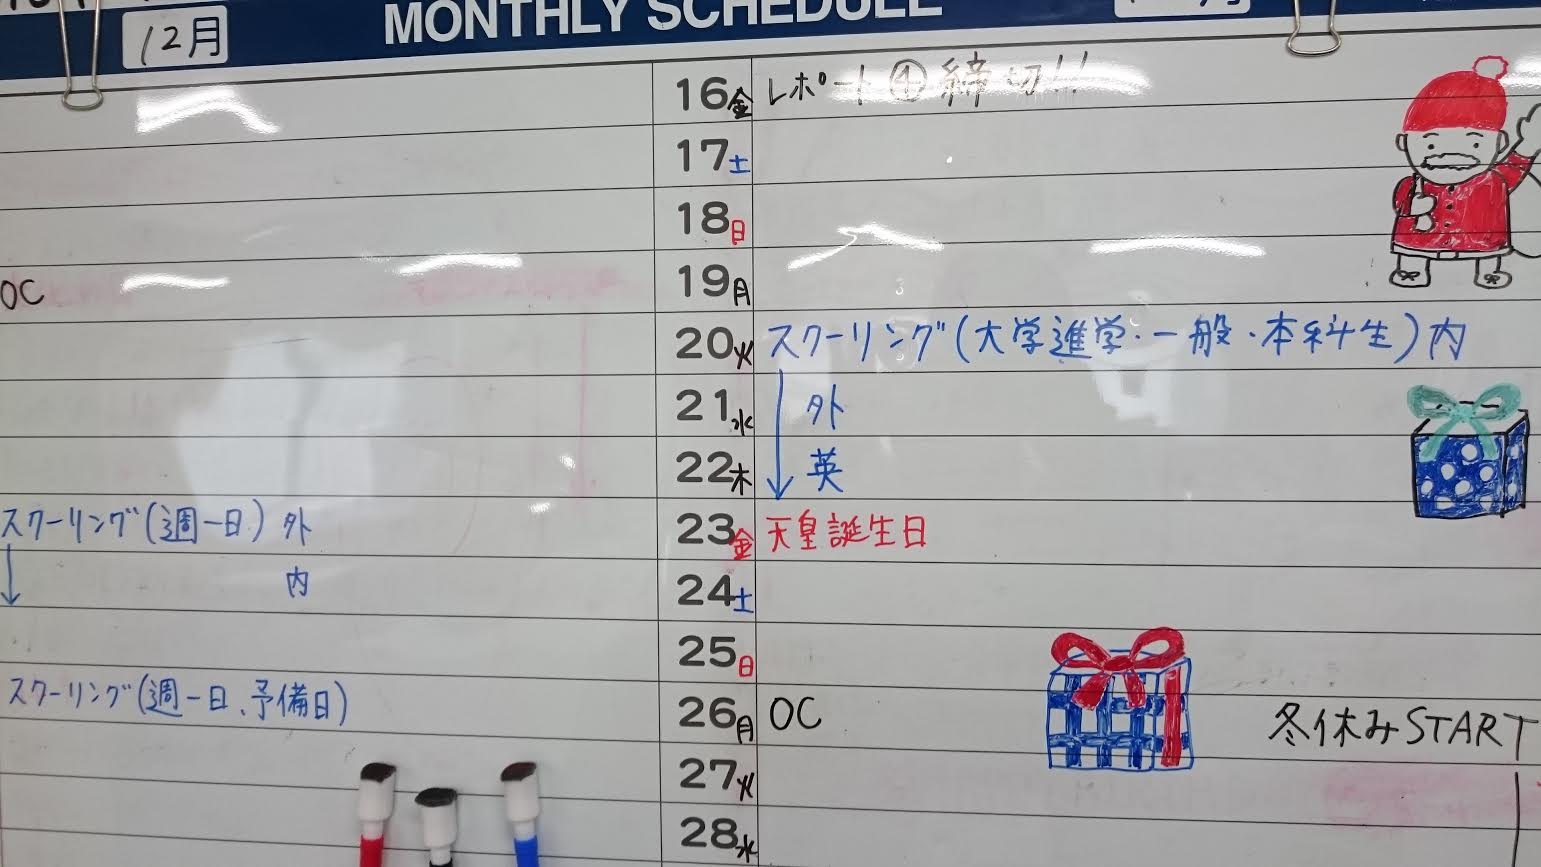 MONTHLY SCHEDULE
12月
OC
スクーリング(週一日) 外
内
スクーリング(週一日、予備日)
16金 レポート④締切!!
17土
18日
19月
20火 スクーリング(大学進学・一般・本科生)内
21水 外
22木 英
23金 天皇誕生日
24土
25日
26月 OC 冬休みSTART
27火
28水